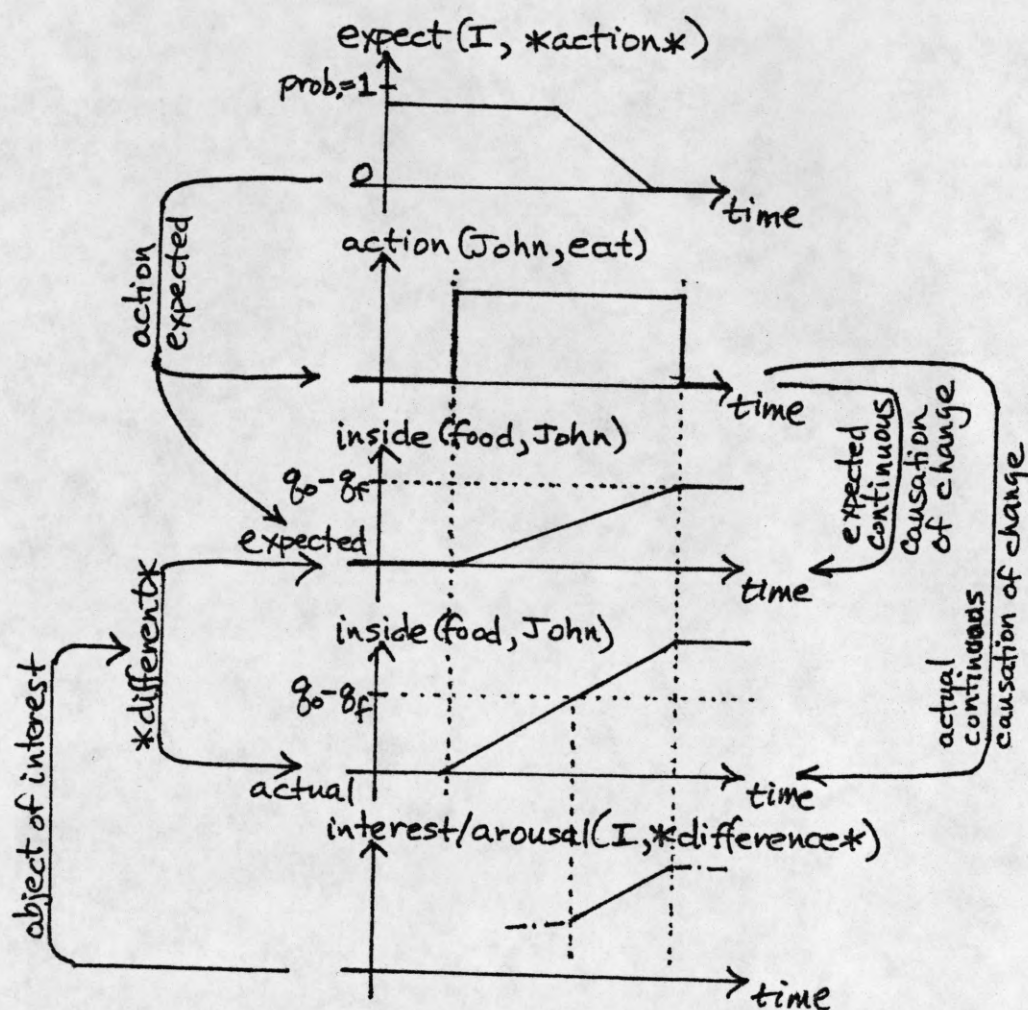 expect(I, *action*)
prob.=1
0
time
action
expected
action(John, eat)
time
inside(food, John)
q₀-q_f
expected
time
expected
continuous
causation
of change
*different*
inside(food, John)
q₀-q_f
actual
time
actual
continuous
causation of change
object of interest
interest/arousal(I, *difference*)
time